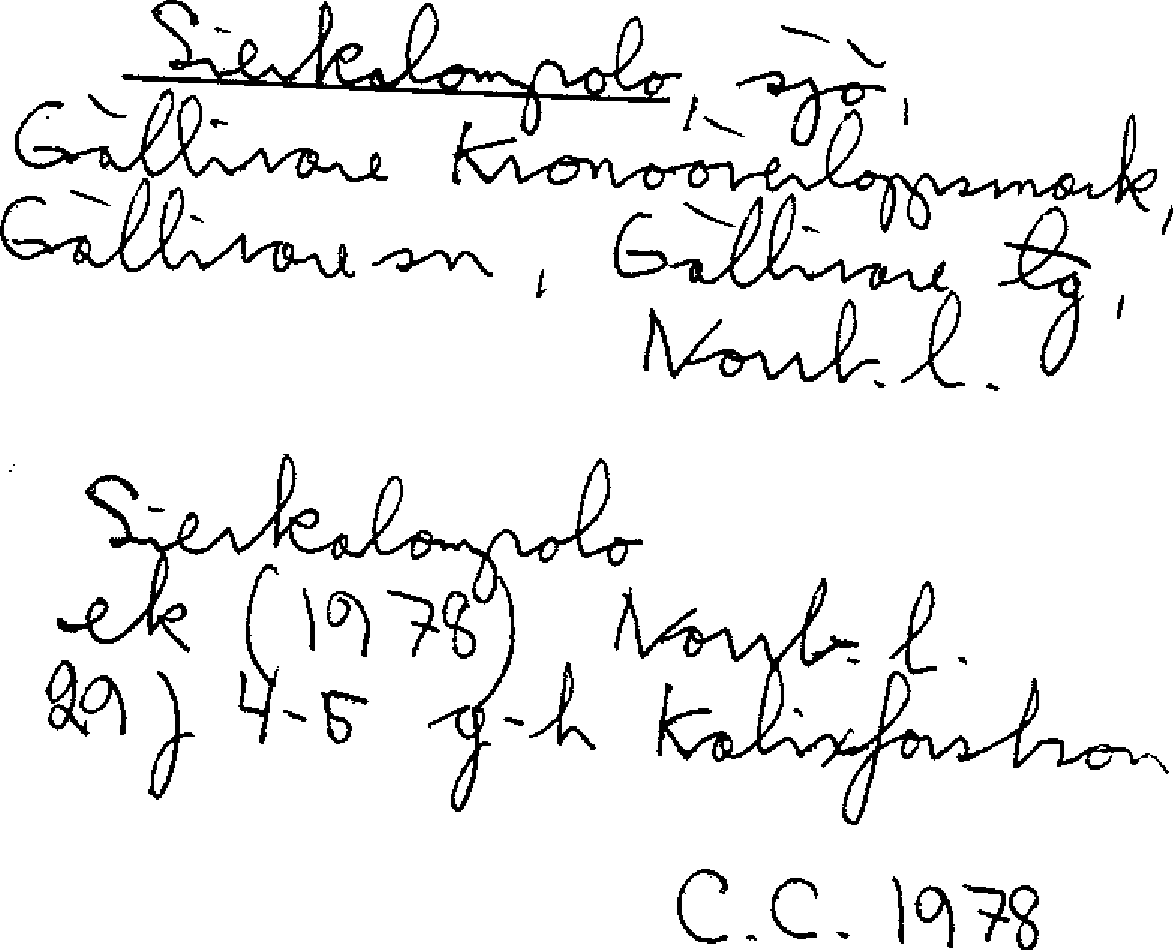 Sierkalompolo, sjö,
Gällivare Kronoöverloppsmark,
Gällivare sn, Gällivare tg,
Norrb. l.
Sierkalompolo
ek (1978) Norrb. l.
29 J 4-5 g-h Kalixforsbron
C.C. 1978